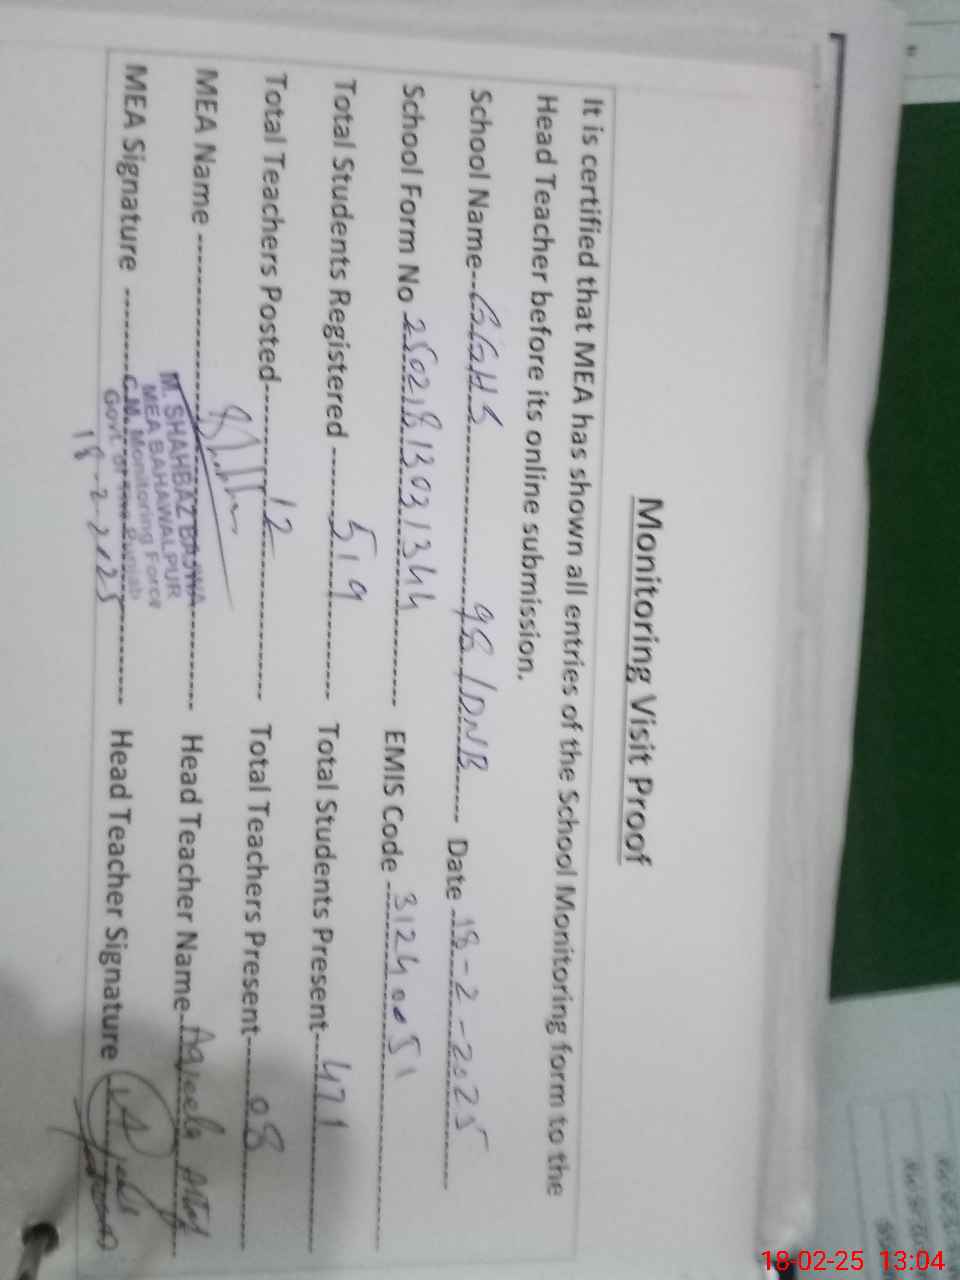 Monitoring Visit Proof
It is certified that MEA has shown all entries of the School Monitoring form to the
Head Teacher before its online submission.
School Name GGHS 98/DNB Date 18-2-2025
School Form No 25021813031344 EMIS Code 31240051
Total Students Registered 519 Total Students Present 471
Total Teachers Posted 12 Total Teachers Present 08
MEA Name Head Teacher Name Aqeela
M. SHAHBAZ BAJWA
MEA BAHAWALPUR
C.M. Monitoring Force
Govt. of the Punjab
MEA Signature Head Teacher Signature
18-2-2025
18-02-25 13:04